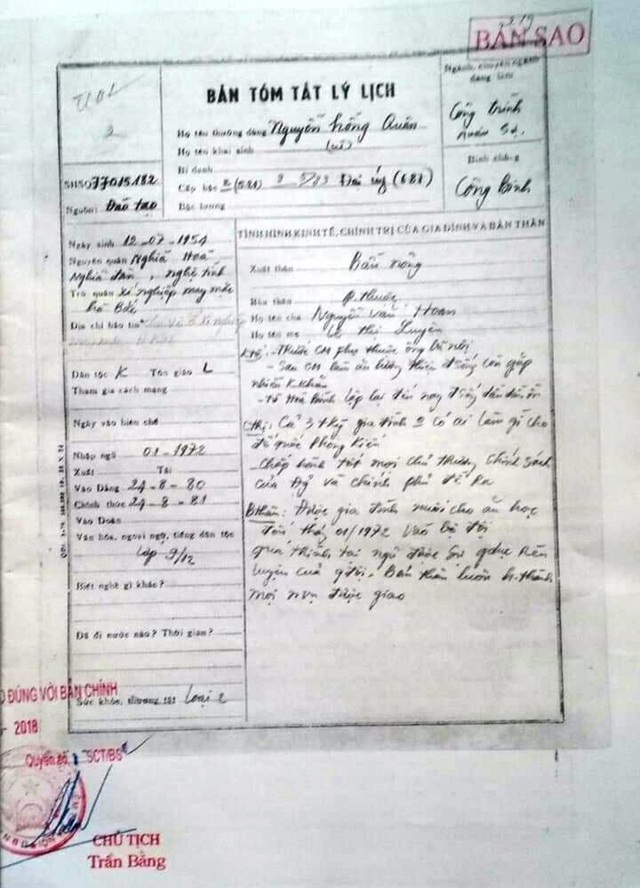 BẢN SAO
BẢN TÓM TẮT LÝ LỊCH
Họ tên thường dùng Nguyễn Hồng Quân
Họ tên khai sinh
Bí danh
Cấp bậc
Đại úy (6.81)
Bậc lương
Ngành, chuyên ngành
đang làm
Công trình
quân sự
Binh chủng
Công Binh
SHSQ 77015.182
Nguồn: Đào tạo
Ngày sinh 12-07-1954
Nguyên quán Nghĩa Hoà
Nghĩa đàn, nghệ tĩnh
Trú quán xí nghiệp may mặc
Địa chỉ báo tin
Dân tộc K Tôn giáo L
Tham gia cách mạng
Ngày vào biên chế
Nhập ngũ 01-1972
Xuất Tái
Vào Đảng 24-8-80
Chính thức 24-8-81
Vào Đoàn
Văn hóa, ngoại ngữ, tiếng dân tộc
Lớp 9/12
Biết nghề gì khác?
Đã đi nước nào? Thời gian?
Sức khỏe, thương tật Loại 2
TÌNH HÌNH KINH TẾ, CHÍNH TRỊ CỦA GIA ĐÌNH VÀ BẢN THÂN
Xuất thân Bần nông
Bản thân P. thuộc
Họ tên cha Nguyễn Văn Hoan
Họ tên mẹ Lê Thị Luyện
KTế: Trước CM phụ thuộc ông bà nội
- Sau CM làm ăn lương thiện đ/sống còn gặp
nhiều K.khăn
- Từ Hoà Bình lập lại đến nay đ/sống dần dần ổn
CTrị: Cả 3 tkỳ gia đình 0 có ai làm gì cho
đế quốc Phong Kiến
- Chấp hành tốt mọi chủ trương chính sách
của Đg và chính phủ đề ra
BThân: Được gia đình nuôi cho ăn học
đến thg 01/1972 vào bộ đội
quá trình tại ngũ được sự gdục rèn
luyện của qđội. Bản thân luôn h.thành
mọi n.vụ được giao
ĐÚNG VỚI BẢN CHÍNH
2018
Quyển số. SCT/BS
CHỦ TỊCH
Trần Bằng